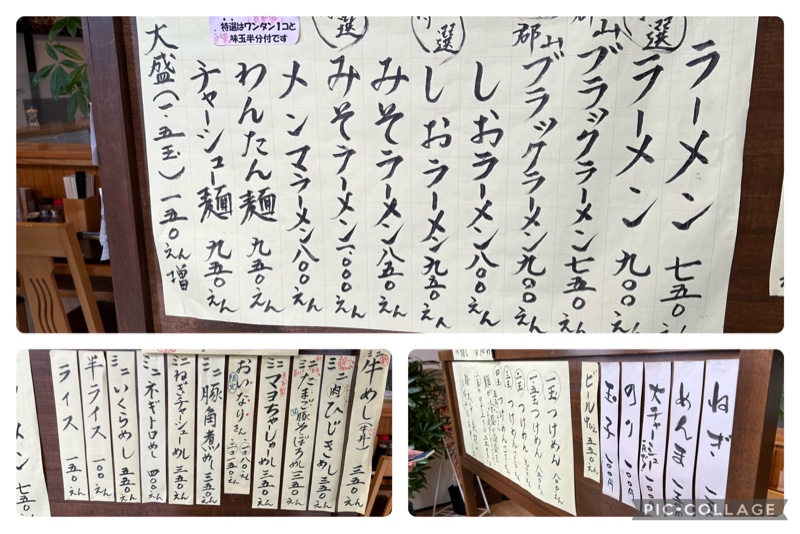 ラーメン 七五〇えん
選
ラーメン 九〇〇えん
郡山ブラックラーメン 七五〇えん
郡山ブラックラーメン 九〇〇えん
しおラーメン 八〇〇えん
選
しおラーメン 九五〇えん
みそラーメン 八五〇えん
選
みそラーメン 一、〇〇〇えん
メンマラーメン 八〇〇えん
わんたん麺 九五〇えん
チャーシュー麺 九五〇えん
大盛(一・五玉) 一五〇えん増
特選はワンタン1コと
味玉半分付です
ミニ牛めし(牛丼) 三五〇えん
ミニ肉ひじきめし 三五〇えん
ミニたまご豚そぼろめし 三五〇えん
ミニマヨちゃーしゅーめし 三五〇えん
おいなりさん
ミニ豚角煮めし 三五〇えん
ミニねぎチャーシューめし 三五〇えん
ミニネギトロめし 四〇〇えん
ミニいくらめし 五五〇えん
半ライス 一〇〇えん
ライス 一五〇えん
ねぎ
めんま
大チャーシュー
のり 100円
玉子 100円
ビール 中びん 五五〇えん
一玉 つけめん
一五玉 つけめん
二玉 つけめん
PIC•COLLAGE